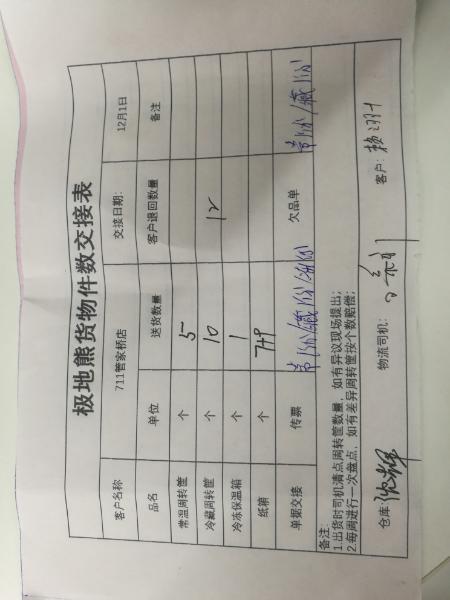 极地熊货物件数交接表
客户名称 711管家桥店 交接日期: 12月1日
品名 单位 送货数量 客户退回数量 备注
常温周转筐 个 5
冷藏周转筐 个 10 12
冷冻保温箱 个 1
纸箱 个
单据交接 传票 常1份/藏1份/冻1份 欠品单 常1份/藏1份
备注:
1.出货时司机清点周转筐数量,如有异议现场提出;
2.每周进行一次盘点,如有差异周转筐按个数赔偿;
仓库: 物流司机: 客户: